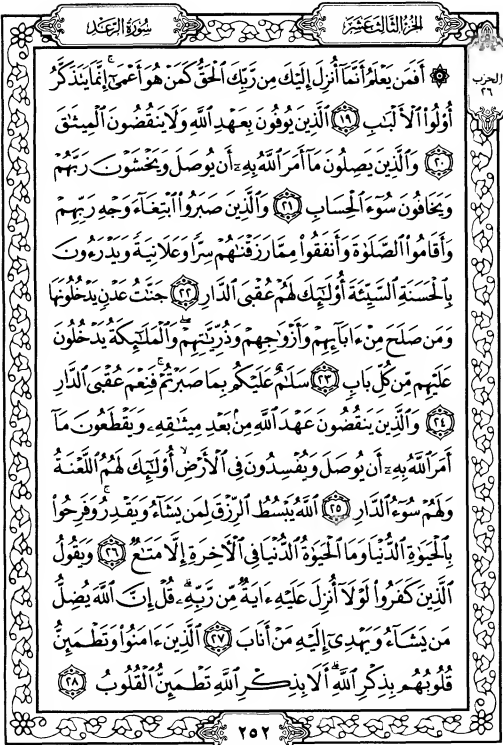 سُورَةُ الرَّعْدِ
الجُزْءُ الثَّالِثَ عَشَرَ
الحزب
٢٦
۞ أَفَمَن يَعْلَمُ أَنَّمَآ أُنزِلَ إِلَيْكَ مِن رَّبِّكَ ٱلْحَقُّ كَمَنْ هُوَ أَعْمَىٰٓ ۚ إِنَّمَا يَتَذَكَّرُ
أُو۟لُوا۟ ٱلْأَلْبَٰبِ ١٩ ٱلَّذِينَ يُوفُونَ بِعَهْدِ ٱللَّهِ وَلَا يَنقُضُونَ ٱلْمِيثَٰقَ
٢٠ وَٱلَّذِينَ يَصِلُونَ مَآ أَمَرَ ٱللَّهُ بِهِۦٓ أَن يُوصَلَ وَيَخْشَوْنَ رَبَّهُمْ
وَيَخَافُونَ سُوٓءَ ٱلْحِسَابِ ٢١ وَٱلَّذِينَ صَبَرُوا۟ ٱبْتِغَآءَ وَجْهِ رَبِّهِمْ
وَأَقَامُوا۟ ٱلصَّلَوٰةَ وَأَنفَقُوا۟ مِمَّا رَزَقْنَٰهُمْ سِرًّا وَعَلَانِيَةً وَيَدْرَءُونَ
بِٱلْحَسَنَةِ ٱلسَّيِّئَةَ أُو۟لَٰٓئِكَ لَهُمْ عُقْبَى ٱلدَّارِ ٢٢ جَنَّٰتُ عَدْنٍ يَدْخُلُونَهَا
وَمَن صَلَحَ مِنْ ءَابَآئِهِمْ وَأَزْوَٰجِهِمْ وَذُرِّيَّٰتِهِمْ ۖ وَٱلْمَلَٰٓئِكَةُ يَدْخُلُونَ
عَلَيْهِم مِّن كُلِّ بَابٍ ٢٣ سَلَٰمٌ عَلَيْكُم بِمَا صَبَرْتُمْ ۚ فَنِعْمَ عُقْبَى ٱلدَّارِ
٢٤ وَٱلَّذِينَ يَنقُضُونَ عَهْدَ ٱللَّهِ مِنۢ بَعْدِ مِيثَٰقِهِۦ وَيَقْطَعُونَ مَآ
أَمَرَ ٱللَّهُ بِهِۦٓ أَن يُوصَلَ وَيُفْسِدُونَ فِى ٱلْأَرْضِ ۙ أُو۟لَٰٓئِكَ لَهُمُ ٱللَّعْنَةُ
وَلَهُمْ سُوٓءُ ٱلدَّارِ ٢٥ ٱللَّهُ يَبْسُطُ ٱلرِّزْقَ لِمَن يَشَآءُ وَيَقْدِرُ ۚ وَفَرِحُوا۟
بِٱلْحَيَوٰةِ ٱلدُّنْيَا وَمَا ٱلْحَيَوٰةُ ٱلدُّنْيَا فِى ٱلْءَاخِرَةِ إِلَّا مَتَٰعٌ ٢٦ وَيَقُولُ
ٱلَّذِينَ كَفَرُوا۟ لَوْلَآ أُنزِلَ عَلَيْهِ ءَايَةٌ مِّن رَّبِّهِۦ ۗ قُلْ إِنَّ ٱللَّهَ يُضِلُّ
مَن يَشَآءُ وَيَهْدِىٓ إِلَيْهِ مَنْ أَنَابَ ٢٧ ٱلَّذِينَ ءَامَنُوا۟ وَتَطْمَئِنُّ
قُلُوبُهُم بِذِكْرِ ٱللَّهِ ۗ أَلَا بِذِكْرِ ٱللَّهِ تَطْمَئِنُّ ٱلْقُلُوبُ ٢٨
٢٥٢